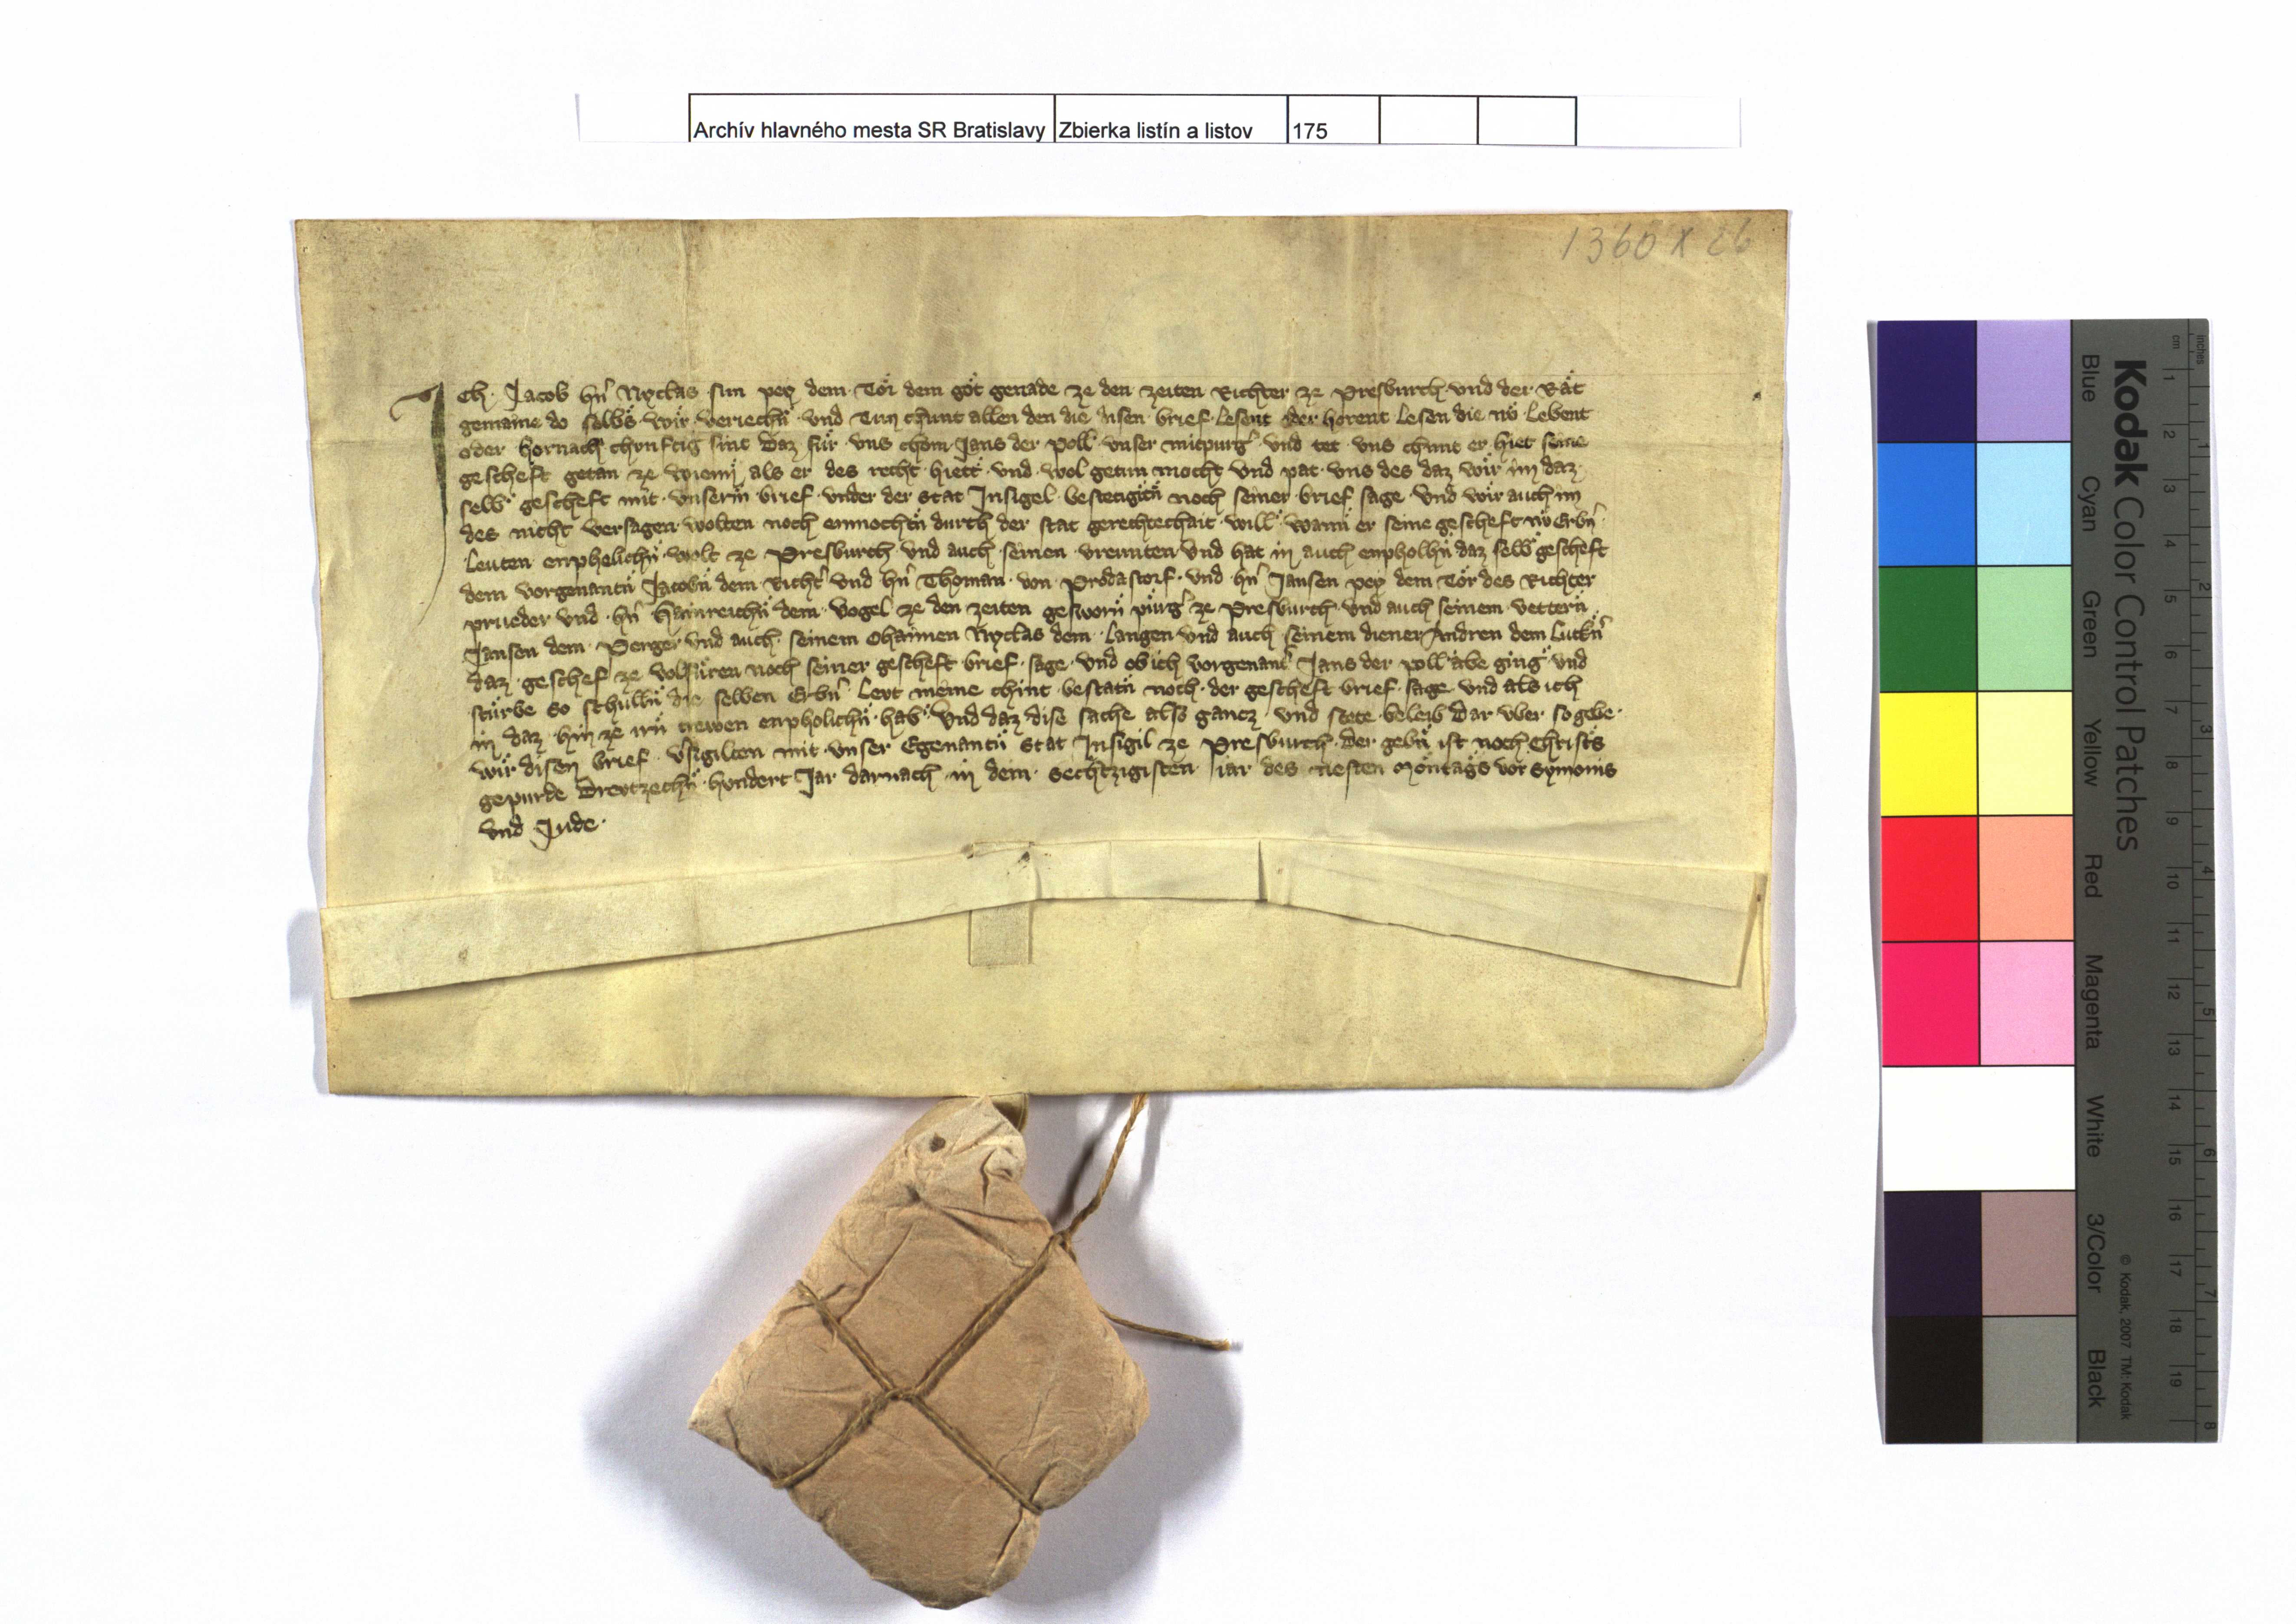 Archív hlavného mesta SR Bratislavy Zbierka listín a listov 175
1360 X 26
Ich Jacob hn̄ Nyclas sun pey dem Tör dem got genade ze den zeiten Richter ze Presburch und der Rät
gemaine do selbs wir veriechn̄ und Tun chunt allen den die disen brief lesent oder horent lesen die nv lebent
oder hornach chvnftig sint Daz für vns chom Jans der Poll vnser mitpurg̉ vnd tet vns chunt er hiet seine
gescheft getan ze Wienn̄ als er des recht hiett vnd wol getun mocht vnd pat vns des daz wir im daz
selb gescheft mit vnserm̄ brief vnder der stat Insigel bestetigetn̄ noch seiner brief sage vnd wir auch im
des nicht versagen wolten noch enmochtn̄ durch der stat gerechtechait will wann̄ er seine gescheft nv Erbn̄
leuten emphelichn̄ wolt ze Presburch vnd auch seinen vreunten vnd hat in auch enpholhn̄ daz selb gescheft
dem vorgenantn̄ Jacobn̄ dem Richt̉ vnd hn̄ Thoman von Prodastorf vnd hn̄ Jansen pey dem Tör des Richter
prueder vnd hn̄ Hainreichn̄ dem Vogel ze den zeiten gesworn̄ pürg̉ ze Presburch vnd auch seinem vettern̄
Jansen dem Perger vnd auch seinem Ohaimen Nyclas dem Langen vnd auch seinem diener Andren dem
daz geschef ze volfüren noch seiner gescheft brief sage vnd ob ich vorgenant̉ Jans der Poll abe ging vnd
stürbe so schulln̄ die selben Erbn̄ levt meine chint bestatn̄ noch der gescheft brief sage vnd als ich
in daz hin ze irn̄ trewen enpholichn̄ hab Vnd daz dise sache also gancz vnd stete beleib Dar vber so gebe
wir disen brief v̉sigilten mit vnser Egenantn̄ Stat Insigil ze Presburch der gebn̄ ist noch Christs
gepurde Drevtzechn̄ hvndert Jar darnach in dem sechtzigisten iar des nesten Möntags vor Symonis
vnd Jude
Kodak Color Control Patches
Blue Cyan Green Yellow Red Magenta White 3/Color Black
© Kodak, 2007 TM: Kodak
inches 1 2 3 4 5 6 7 8
cm 1 2 3 4 5 6 7 8 9 10 11 12 13 14 15 16 17 18 19